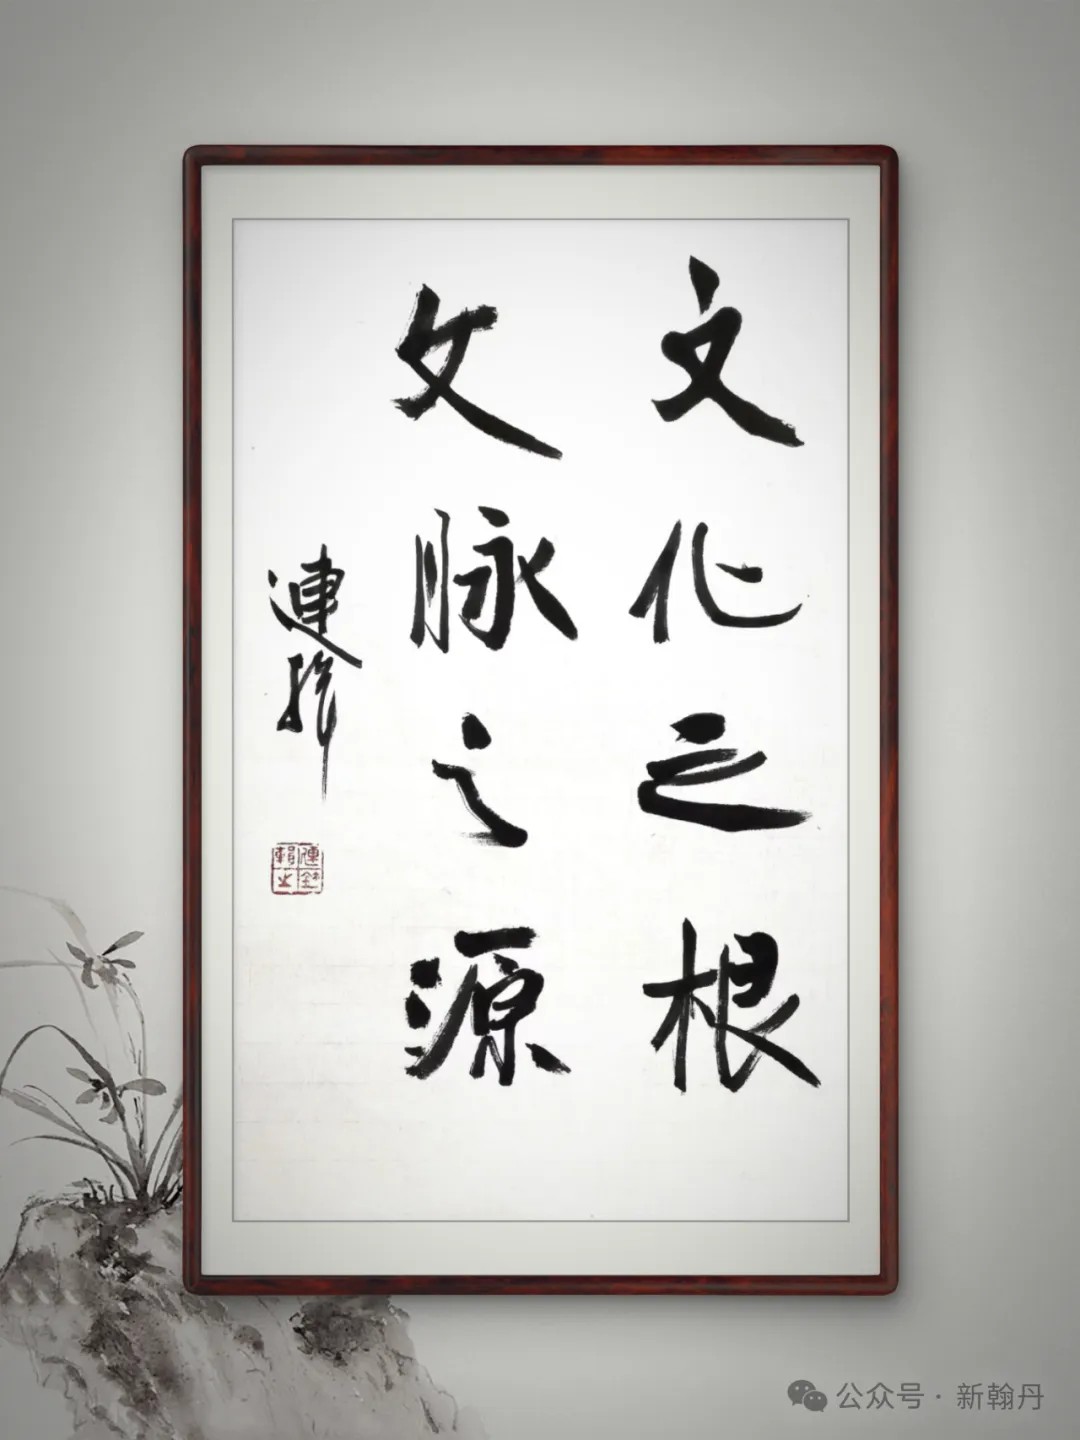 文化之根
文脉之源
連輯
公众号·新翰丹